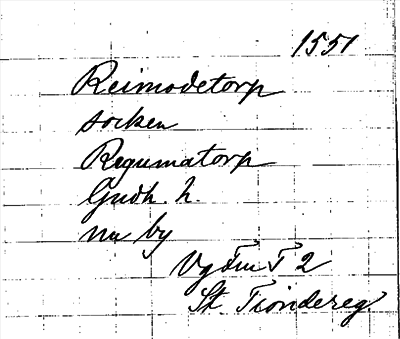 1551
Reimodetorp
socken
Regumatorp
Gudh. h.
nu by
Vg Fm T 2
St. Tiondereg.